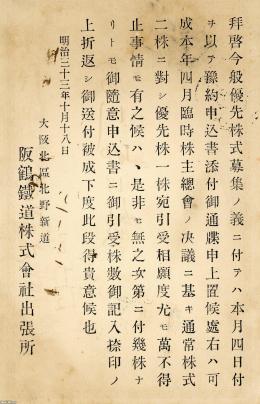 拜啓今般優先株式募集ノ義ニ付テハ本月四日付
ヲ以テ豫約申込書添付御通牒申上置候處右ハ可
成本年四月臨時株主總會ノ决議ニ基キ通常株式
二株ニ對シ優先株一株宛引受相願度尤モ萬不得
止事情モ有之候ハヽ是非モ無之次第ニ付幾株ナ
リトモ御隨意申込書ニ御引受株數御記入捺印ノ
上折返シ御送付被成下度此段得貴意候也
明治三十二年十月十八日
大阪北區北野新道
阪鶴鐵道株式會社出張所